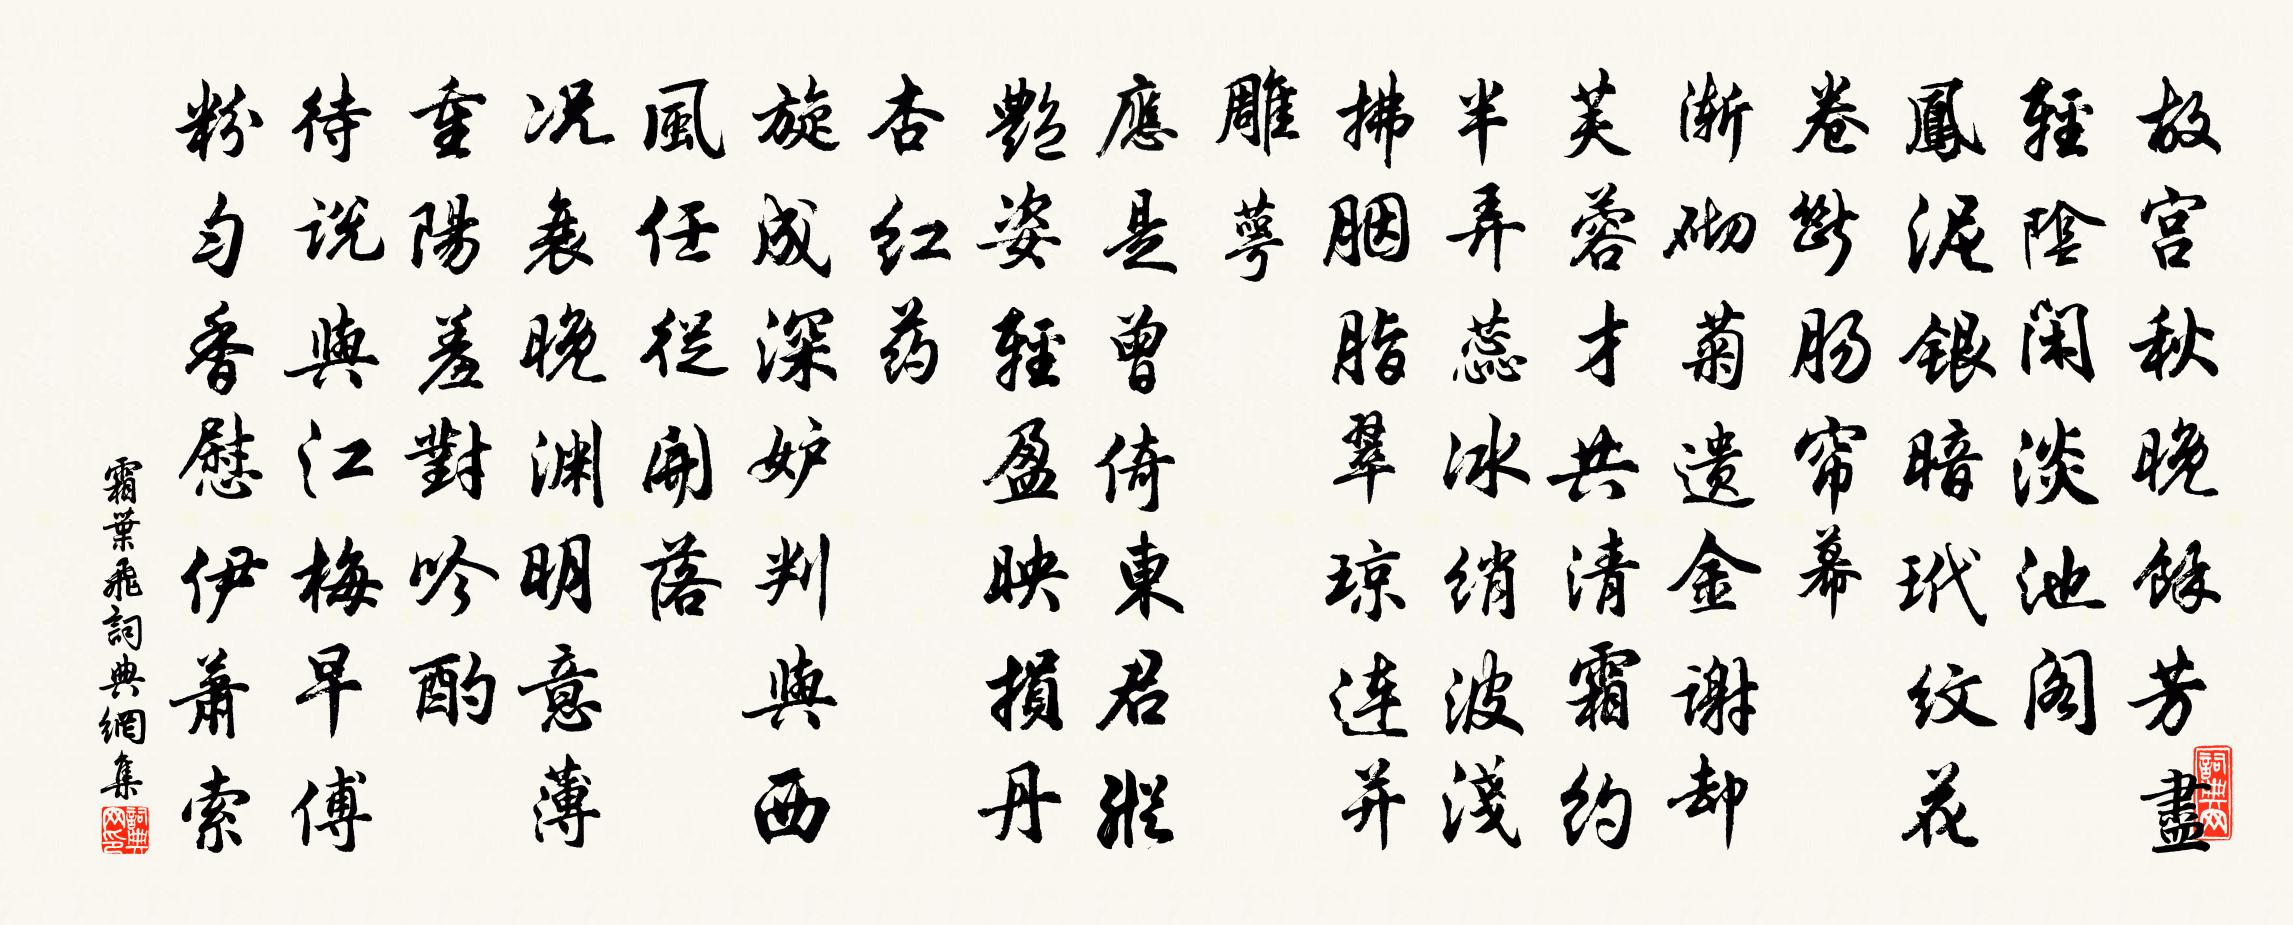 故宫秋晚餘芳盡
輕陰閑淡池阁
鳳泥銀暗玳纹花
卷斷肠帘幕
渐砌菊遗金謝却
芙蓉才共清霜约
半弄蕊冰绡波淺
拂胭脂翠琼连并
雕萼
應是曾倚東君縱
艷姿輕盈映損丹
杏红药
旋成深妒判與西
風任從開落
况衰晚渊明意薄
重陽羞對吟酌
待说與江梅早傅
粉匀香慰伊萧索
霜葉飛詞典網集
詞典网
詞典网印